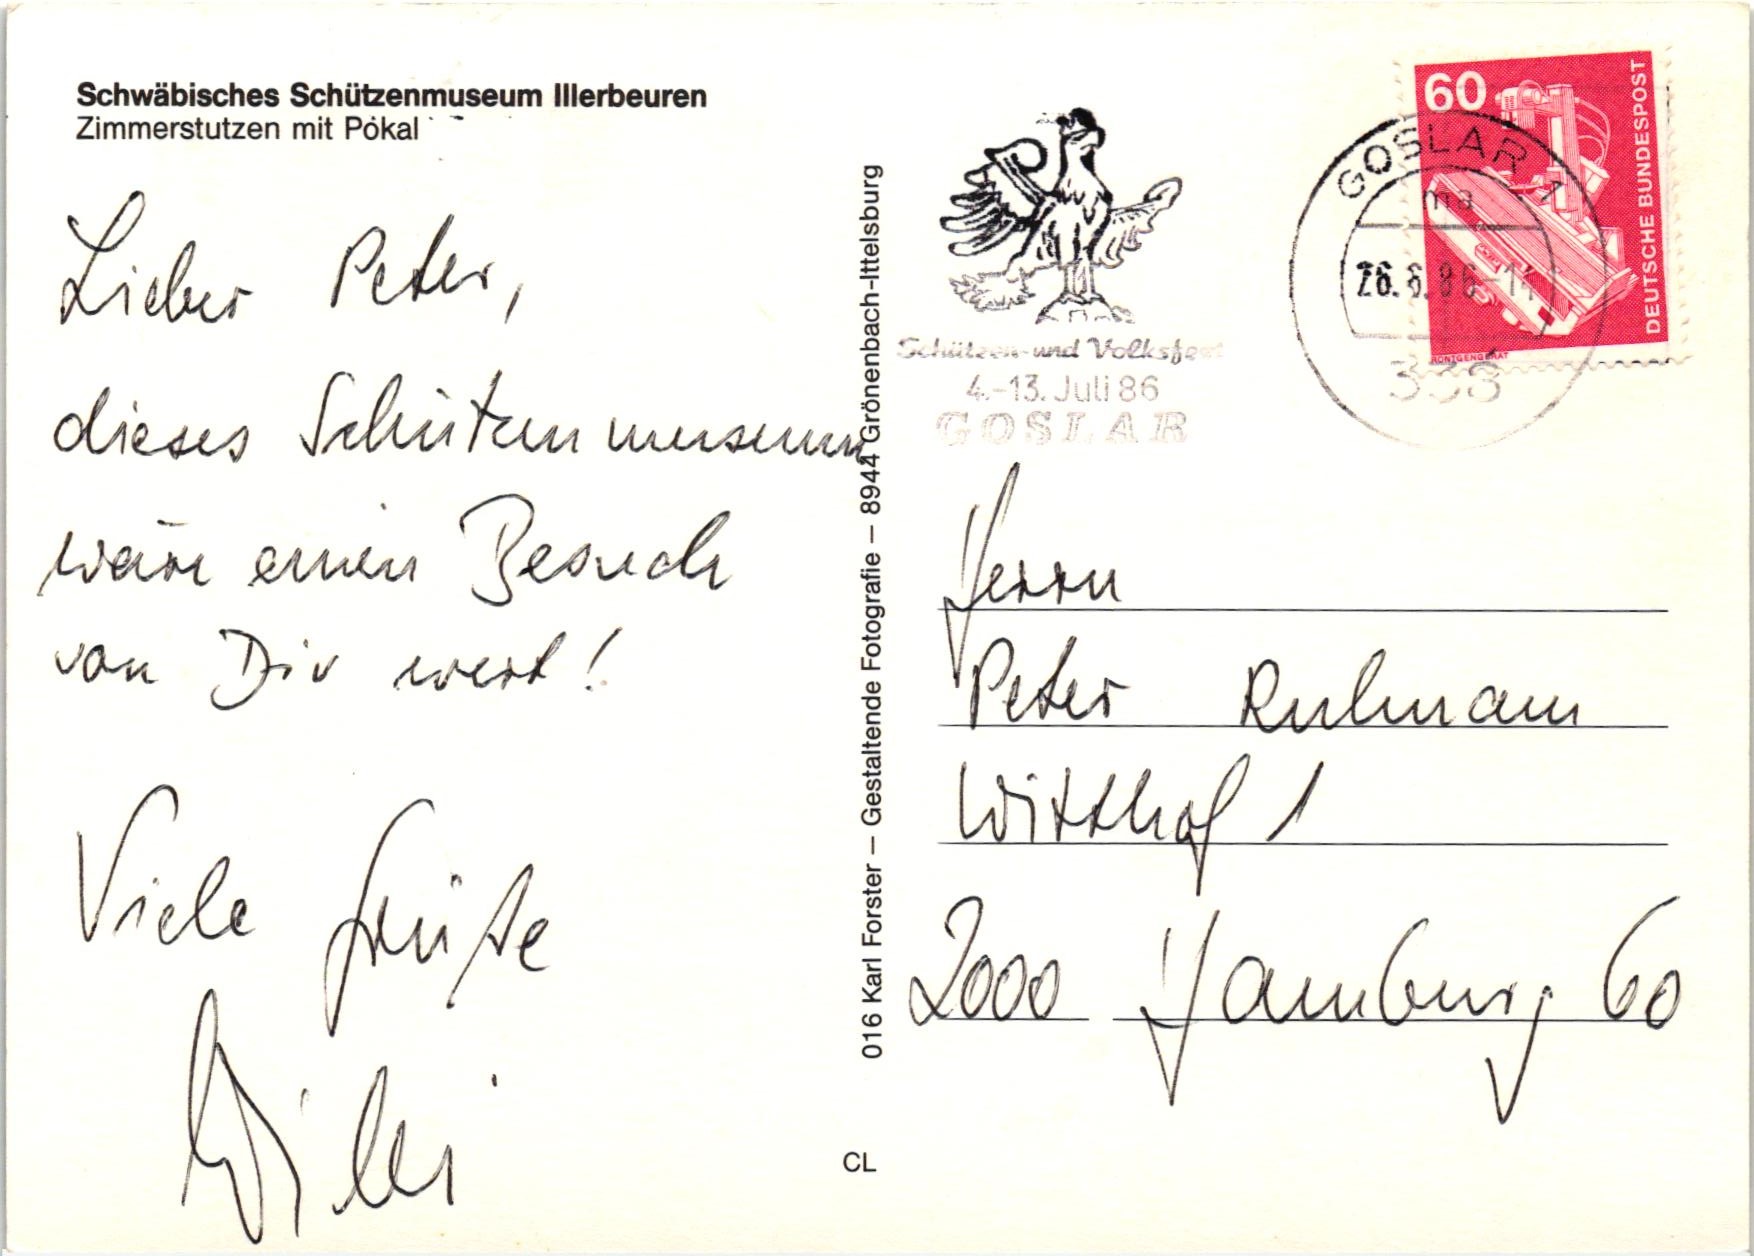 Schwäbisches Schützenmuseum Illerbeuren
Zimmerstutzen mit Pokal
Lieber Peter,
dieses Schützenmuseum
wäre einen Besuch
von Dir wert!
Viele Grüße
Willi
016 Karl Forster — Gestaltende Fotografie — 8944 Grönenbach-Ittelsburg
CL
Schützen- und Volksfest
4.-13. Juli 86
GOSLAR
GOSLAR 1
ma
26.6.86-14
338
60
DEUTSCHE BUNDESPOST
RÖNTGENGERÄT
Herrn
Peter Ruhmann
Witthof 1
2000 Hamburg 60